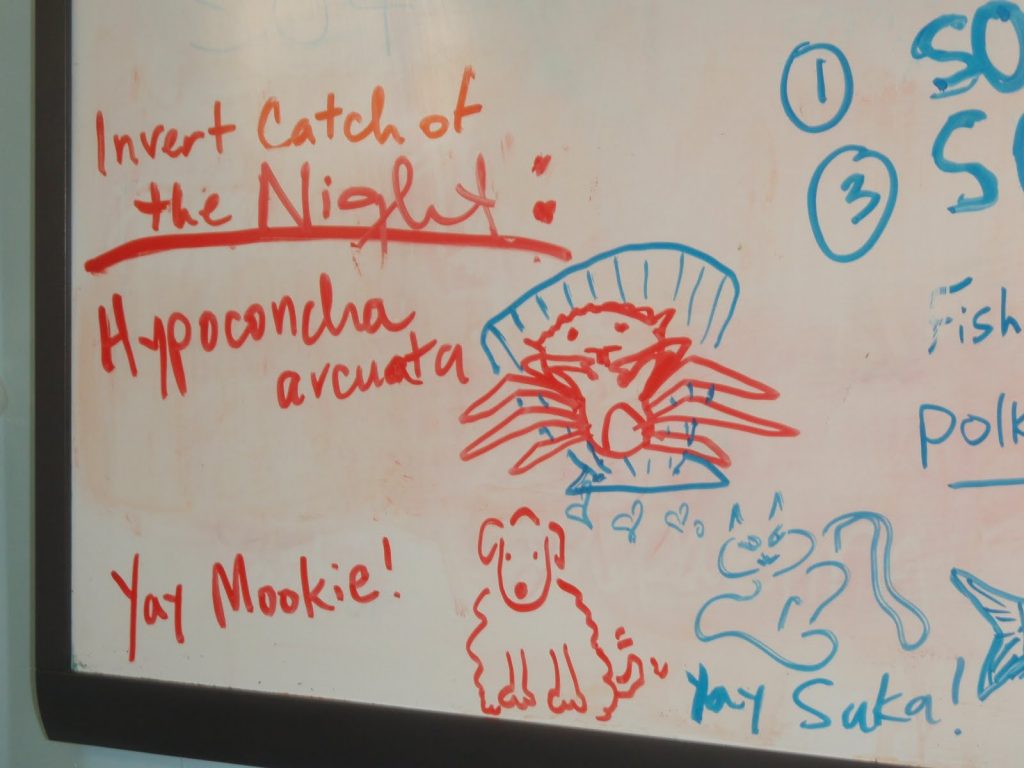 Invert Catch of
the Night:
Hypoconcha
arcuata
Yay Mookie!
Yay Suka!
1
SO
3
S
Fish
polk